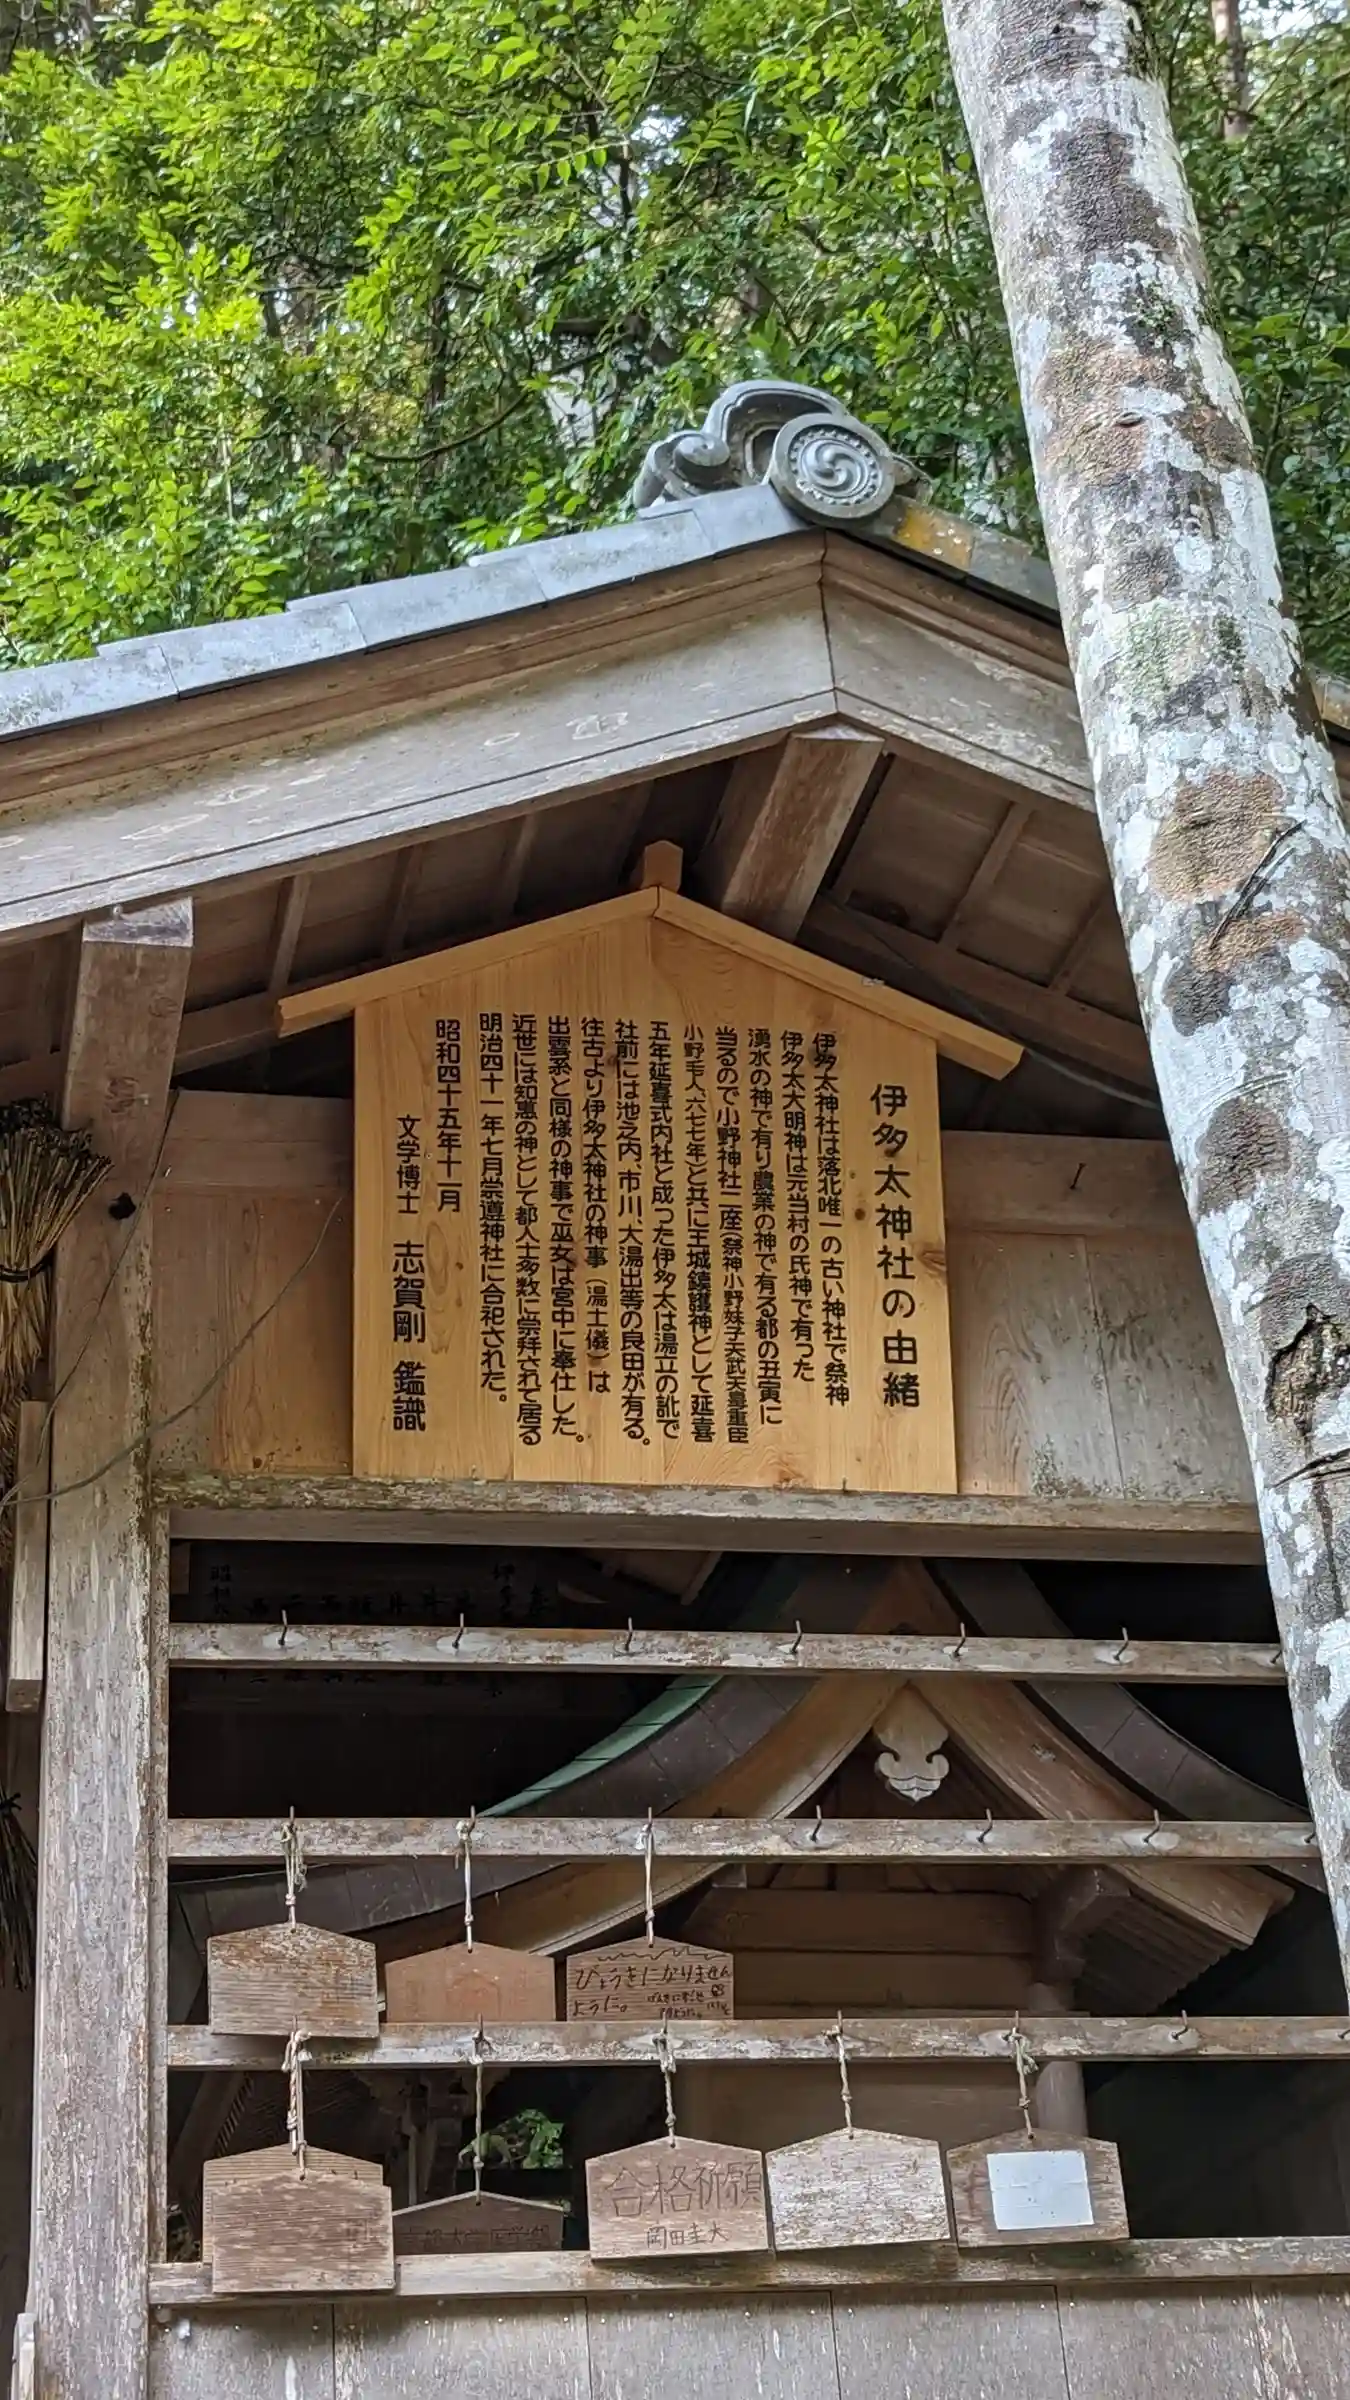 伊多太神社の由緒
伊多太神社は洛北唯一の古い神社で祭神
伊多太大明神は元当村の氏神で有った
湧水の神で有り農業の神で有る都の丑寅に
当るので小野神社二座(祭神小野妹子天武天皇重臣
小野毛人、六七七年)と共に王城鎮護神として延喜
五年延喜式内社と成った伊多太は湯立の訛で
社前には池之内、市川、大湯出等の良田が有る。
往古より伊多太神社の神事(湯土儀)は
出雲系と同様の神事で巫女は宮中に奉仕した。
近世には知恵の神として都人士多数に崇拜されて居る
明治四十一年七月崇道神社に合祀された。
昭和四十五年十一月
文学博士 志賀剛 鑑識
びょうきになりません
ように。
合格祈願
岡田圭大